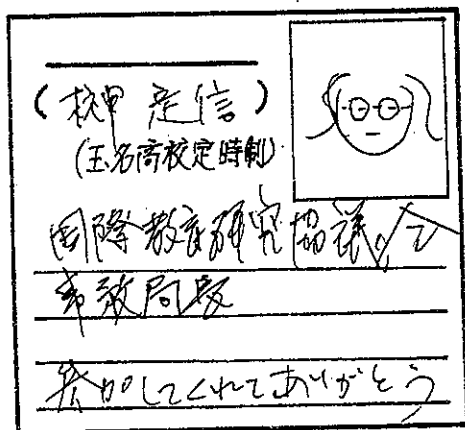 (玉名高校定時制)
国際教育研究協議会
事務局長
参加してくれてありがとう